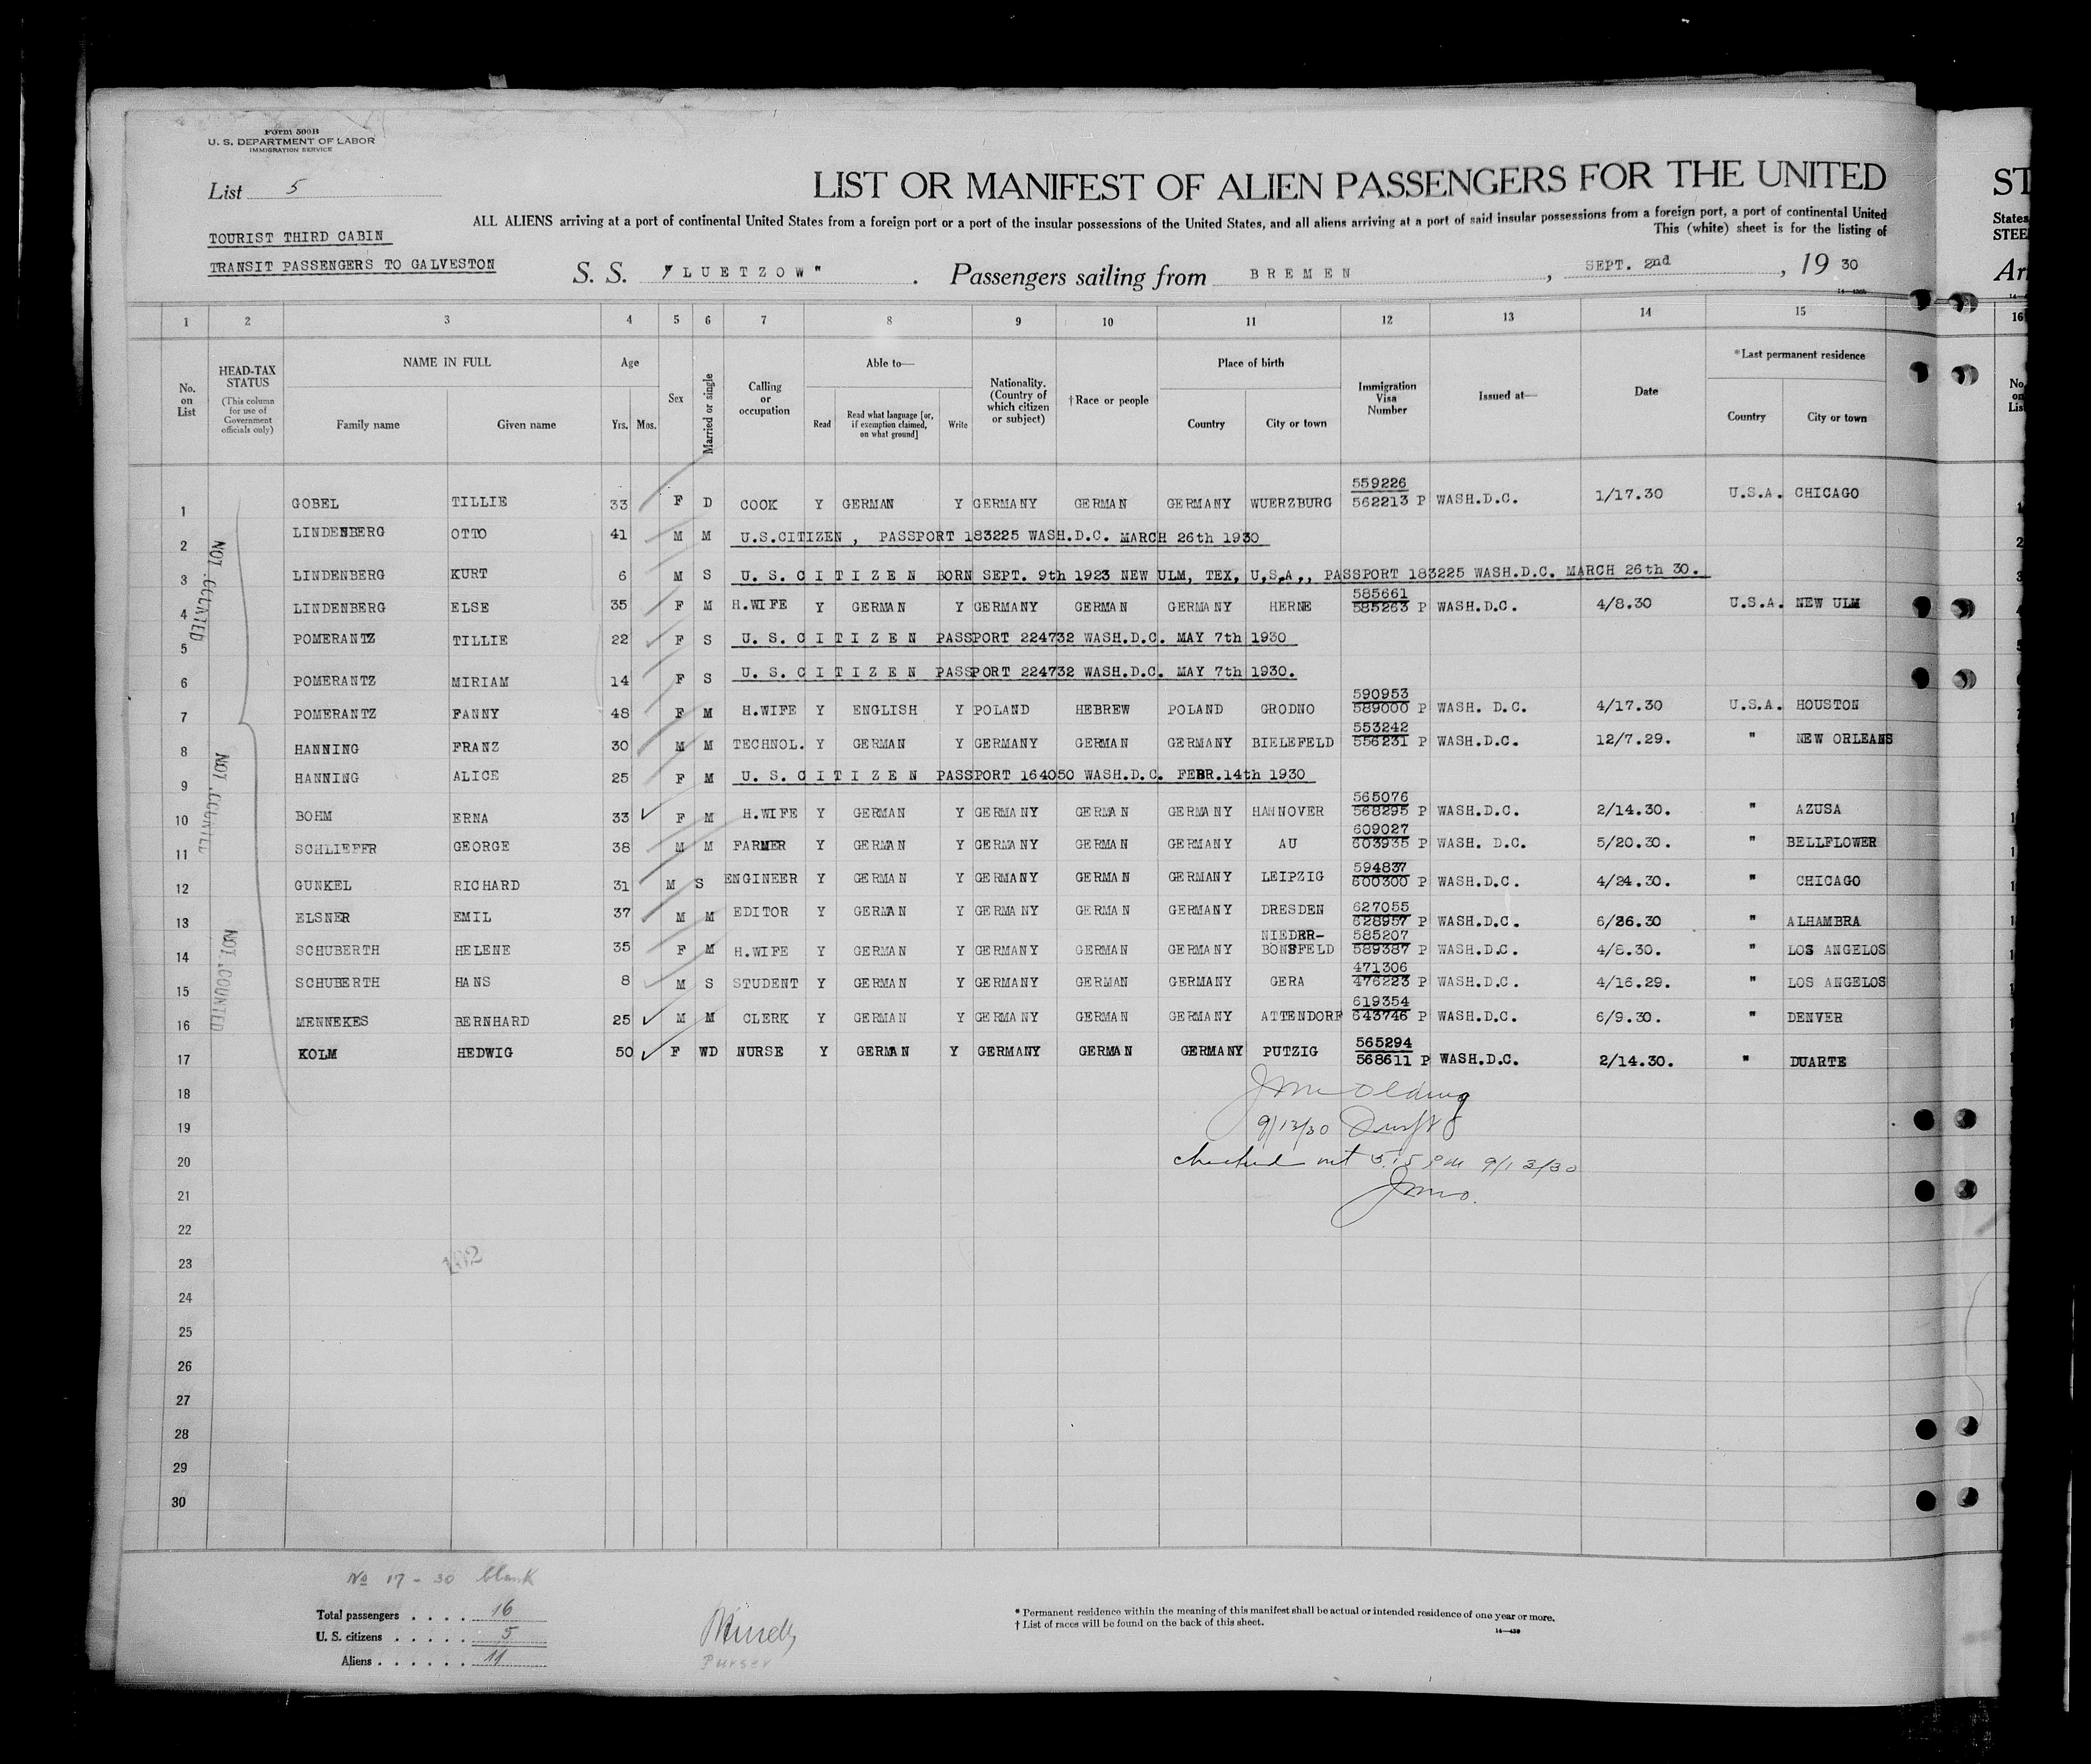 Form 500B
U. S. DEPARTMENT OF LABOR
IMMIGRATION SERVICE
List 5
LIST OR MANIFEST OF ALIEN PASSENGERS FOR THE UNITED
ST
ALL ALIENS arriving at a port of continental United States from a foreign port or a port of the insular possessions of the United States, and all aliens arriving at a port of said insular possessions from a foreign port, a port of continental United
States
This (white) sheet is for the listing of
STEE
TOURIST THIRD CABIN
TRANSIT PASSENGERS TO GALVESTON
S. S. "LUETZOW". Passengers sailing from BREMEN, SEPT. 2nd, 1930
Ar
1 2 3 4 5 6 7 8 9 10 11 12 13 14 15 16
No. on List
HEAD-TAX STATUS
(This column for use of Government officials only)
NAME IN FULL
Family name
Given name
Age
Yrs.
Mos.
Sex
Married or single
Calling or occupation
Able to—
Read
Read what language [or, if exemption claimed, on what ground]
Write
Nationality. (Country of which citizen or subject)
†Race or people
Place of birth
Country
City or town
Immigration Visa Number
Issued at—
Date
*Last permanent residence
Country
City or town
No. on List
1 GOBEL TILLIE 33 F D COOK Y GERMAN Y GERMANY GERMAN GERMANY WUERZBURG 559226 562213 P WASH.D.C. 1/17.30 U.S.A. CHICAGO
2 LINDENBERG OTTO 41 M M U.S.CITIZEN , PASSPORT 183225 WASH.D.C. MARCH 26th 1930
3 LINDENBERG KURT 6 M S U. S. C I T I Z E N BORN SEPT. 9th 1923 NEW ULM, TEX, U,S,A,, PASSPORT 183225 WASH.D.C. MARCH 26th 30.
4 LINDENBERG ELSE 35 F M H.WIFE Y GERMAN Y GERMANY GERMAN GERMANY HERNE 585661 585263 P WASH.D.C. 4/8.30 U.S.A. NEW ULM
5 POMERANTZ TILLIE 22 F S U. S. C I T I Z E N PASSPORT 224732 WASH.D.C. MAY 7th 1930
6 POMERANTZ MIRIAM 14 F S U. S. C I T I Z E N PASSPORT 224732 WASH.D.C. MAY 7th 1930.
7 POMERANTZ FANNY 48 F M H.WIFE Y ENGLISH Y POLAND HEBREW POLAND GRODNO 590953 589000 P WASH. D.C. 4/17.30 U.S.A. HOUSTON
8 HANNING FRANZ 30 M M TECHNOL. Y GERMAN Y GERMANY GERMAN GERMANY BIELEFELD 553242 556231 P WASH.D.C. 12/7.29. " NEW ORLEANS
9 HANNING ALICE 25 F M U. S. C I T I Z E N PASSPORT 164050 WASH.D.C. FEBR.14th 1930
10 BOHM ERNA 33 F M H.WIFE Y GERMAN Y GERMANY GERMAN GERMANY HANNOVER 565076 568295 P WASH.D.C. 2/14.30. " AZUSA
11 SCHLIEFFR GEORGE 38 M M FARMER Y GERMAN Y GERMANY GERMAN GERMANY AU 609027 603935 P WASH. D.C. 5/20.30. " BELLFLOWER
12 GUNKEL RICHARD 31 M S ENGINEER Y GERMAN Y GERMANY GERMAN GERMANY LEIPZIG 594837 600300 P WASH.D.C. 4/24.30. " CHICAGO
13 ELSNER EMIL 37 M M EDITOR Y GERMAN Y GERMANY GERMAN GERMANY DRESDEN 627055 628957 P WASH.D.C. 6/26.30 " ALHAMBRA
14 SCHUBERTH HELENE 35 F M H.WIFE Y GERMAN Y GERMANY GERMAN GERMANY NIEDER-BONSFELD 585207 589387 P WASH.D.C. 4/8.30. " LOS ANGELOS
15 SCHUBERTH HANS 8 M S STUDENT Y GERMAN Y GERMANY GERMAN GERMANY GERA 471306 476223 P WASH.D.C. 4/16.29. " LOS ANGELOS
16 MENNEKES BERNHARD 25 M M CLERK Y GERMAN Y GERMANY GERMAN GERMANY ATTENDORF 619354 643746 P WASH.D.C. 6/9.30. " DENVER
17 KOLM HEDWIG 50 F WD NURSE Y GERMAN Y GERMANY GERMAN GERMANY PUTZIG 565294 568611 P WASH.D.C. 2/14.30. " DUARTE
NOT COUNTED
NOT COUNTED
NOT COUNTED
18
19 9/13/30
20 checked out 5:15 PM 9/13/30
21
22
23
24
25
26
27
28
29
30
No 17 - 30 blank
Total passengers . . . . 16
U. S. citizens . . . . . 5
Aliens . . . . . . 11
Purser
* Permanent residence within the meaning of this manifest shall be actual or intended residence of one year or more.
† List of races will be found on the back of this sheet.